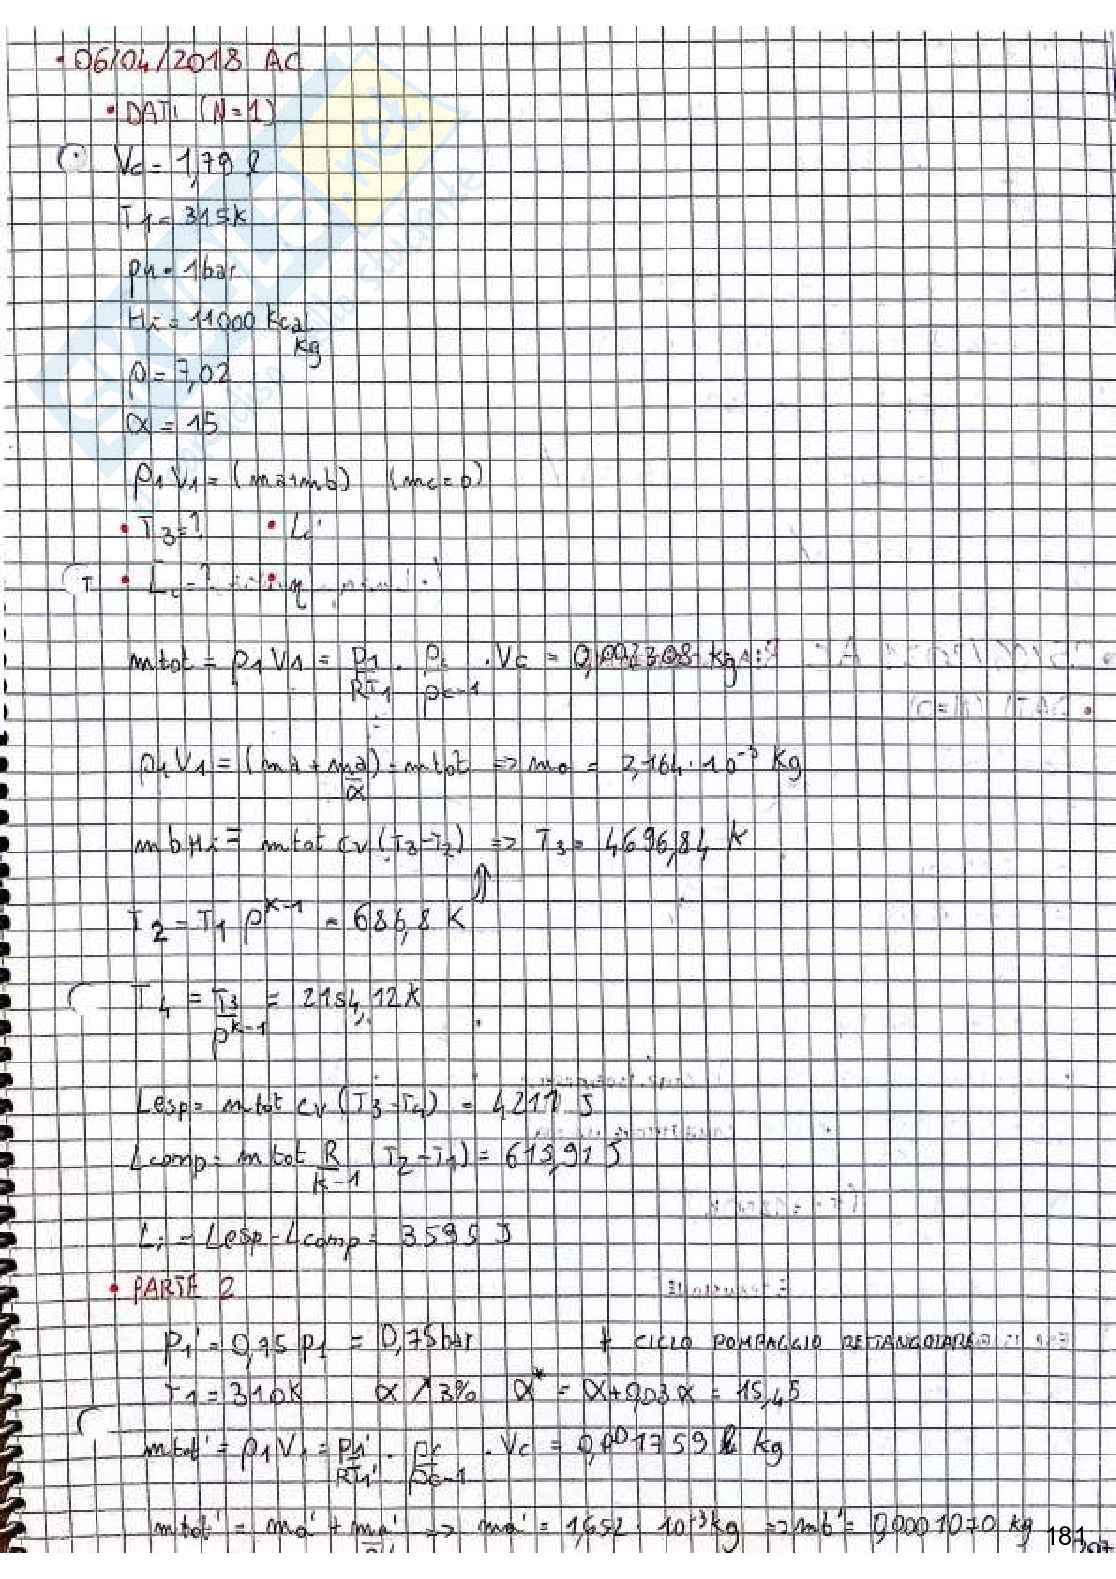 • 06/04/2018 AC
• DATI (N=1)
Vc = 1,79 l
T1 = 315K
p1 = 1bar
Hi = 11000 Kcal/Kg
ρ = 7,02
α = 15
ρ1 V1 = (ma+mb) (mc=0)
• T3=? • Li'
mtot = ρ1 V1 = p1/RT1 · ρc/ρc-1 · Vc = 0,002308 Kg
ρ1 V1 = (ma + ma/α) = mtot => ma = 2,164·10⁻³ Kg
mb Hi = mtot cv (T3-T2) => T3 = 4696,84 K
T2 = T1 ρ^K-1 = 686,8 K
T4 = T3/ρ^K-1 = 2154,12K
Lesp = mtot cv (T3-T4) = 4211 J
Lcomp = mtot R/K-1 (T2-T1) = 615,91 J
Li = Lesp - Lcomp = 3595 J
• PARTE 2
p1' = 0,75 p1 = 0,75bar + CICLO POMPAGGIO RETTANGOLARE
T1 = 310K α ↗3% α* = α+0,03α = 15,45
mtot' = ρ1 V1 = p1'/RT1' · ρc/ρc-1 · Vc = 0,001759 kg
mtot' = ma' + ma' => ma' = 1,652 · 10⁻³kg => mb' = 0,0001070 kg
181